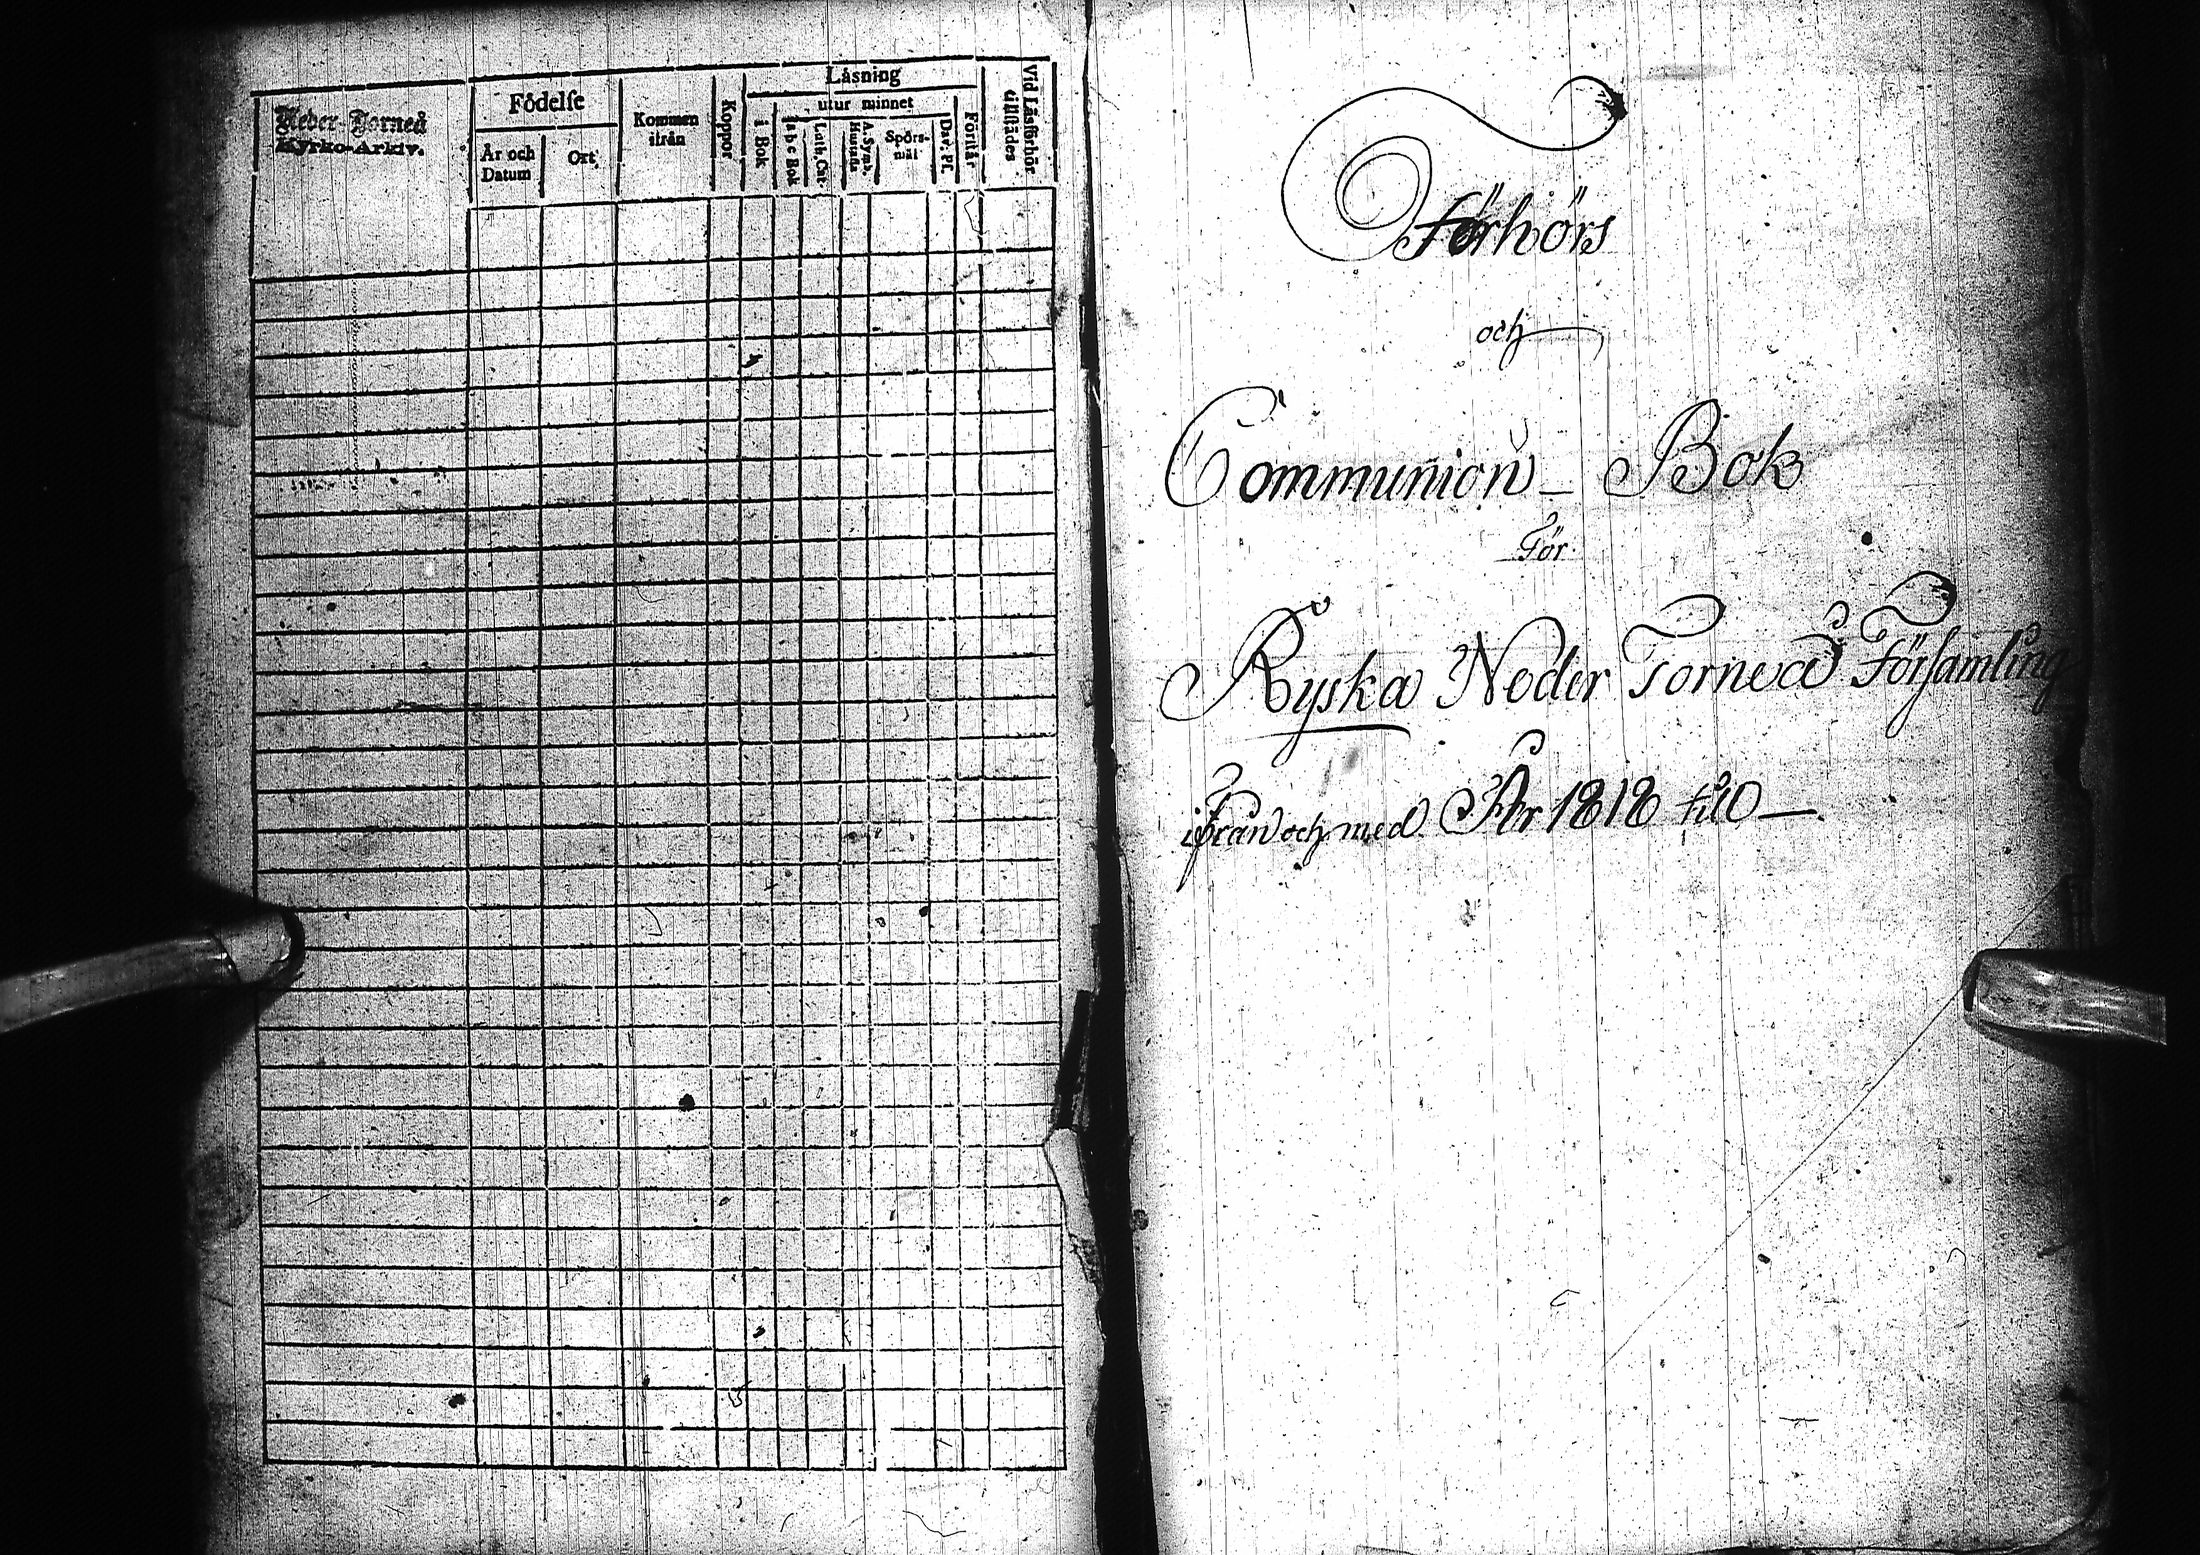 Neder-Torneå
Kyrko-Arkiv.
Födelse
År och
Datum
Ort
Kommen
ifrån
Koppor
Läsning
i Bok
utur minnet
a b c Bok
Luth. Cat.
A. Symb.
Hustafla
Spörs-
mål
Dav. Ps.
Förstår
Vid Läsförhör
tillstädes
Förhörs
och
Communion - Bok
För
Ryska Neder Torneå Församling
ifrån och med År 1818 till —